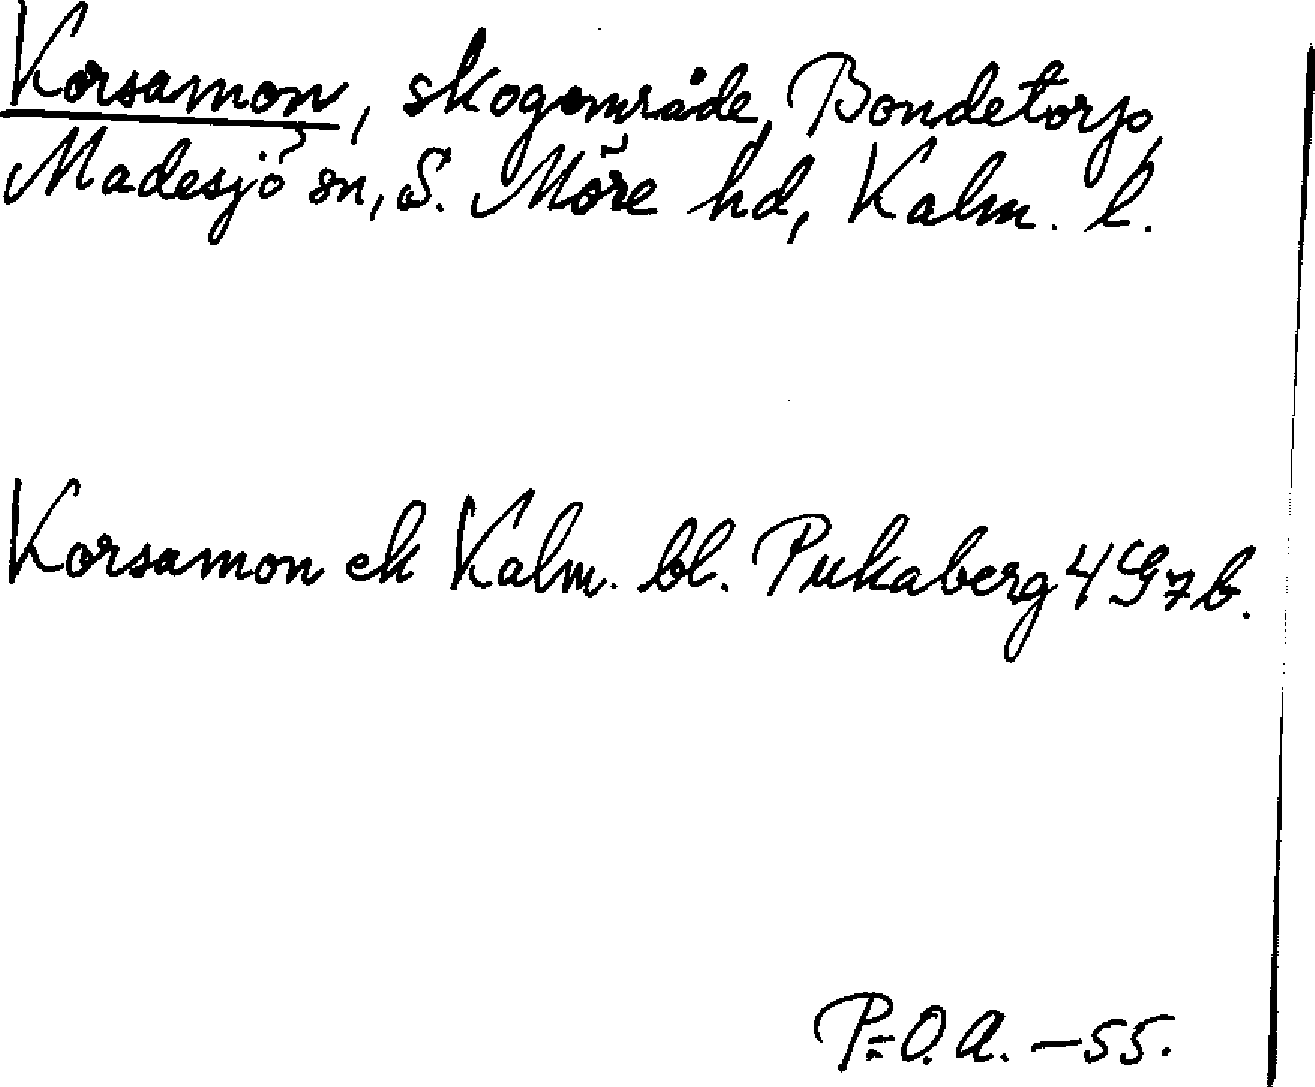 Korsamon, skogområde, Bondetorp,
Madesjö sn, S. Möre hd, Kalm. l.
Korsamon ek Kalm. bl. Pukaberg 4G7b.
P-O.A. -55.